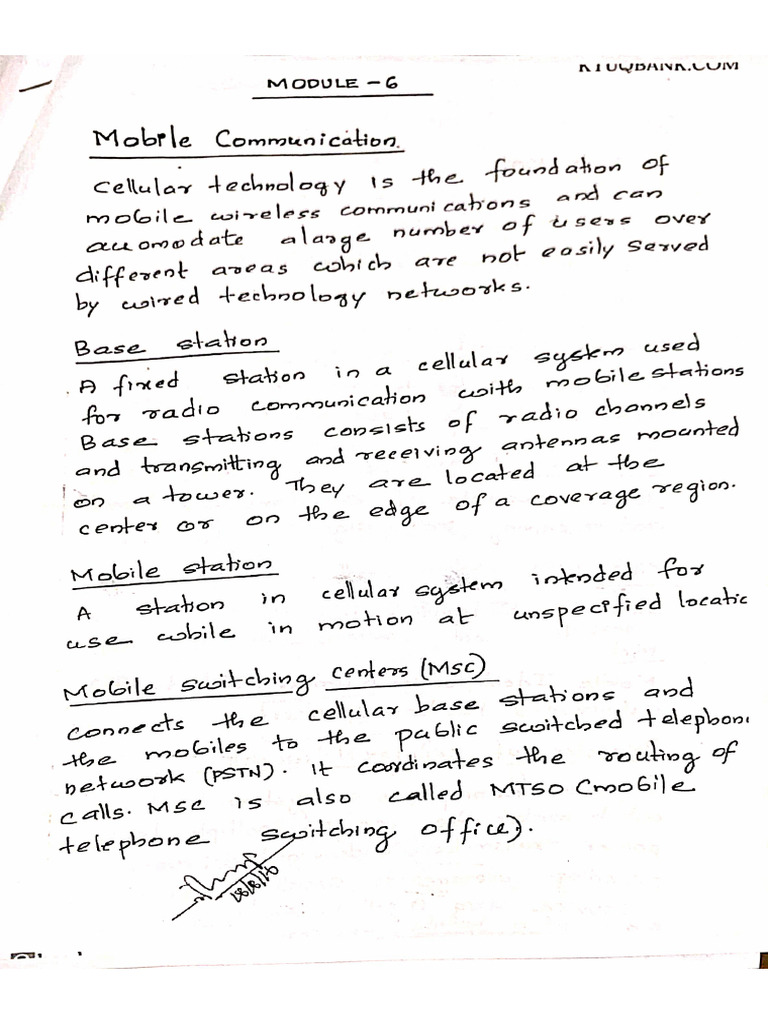 KTUQBANK.COM
MODULE - 6
Mobile Communication.
Cellular technology is the foundation of
mobile wireless communications and can
auomodate a large number of users over
different areas which are not easily served
by wired technology networks.
Base station
A fixed station in a cellular system used
for radio communication with mobile stations
Base stations consists of radio channels
and transmitting and receiving antennas mounted
on a tower. They are located at the
center or on the edge of a coverage region.
Mobile station
A station in cellular system intended for
use while in motion at unspecified locatio
Mobile switching centers (MSC)
connects the cellular base stations and
the mobiles to the public switched telephone
network (PSTN). It coordinates the routing of
calls. MSC is also called MTSO (mobile
telephone switching office).